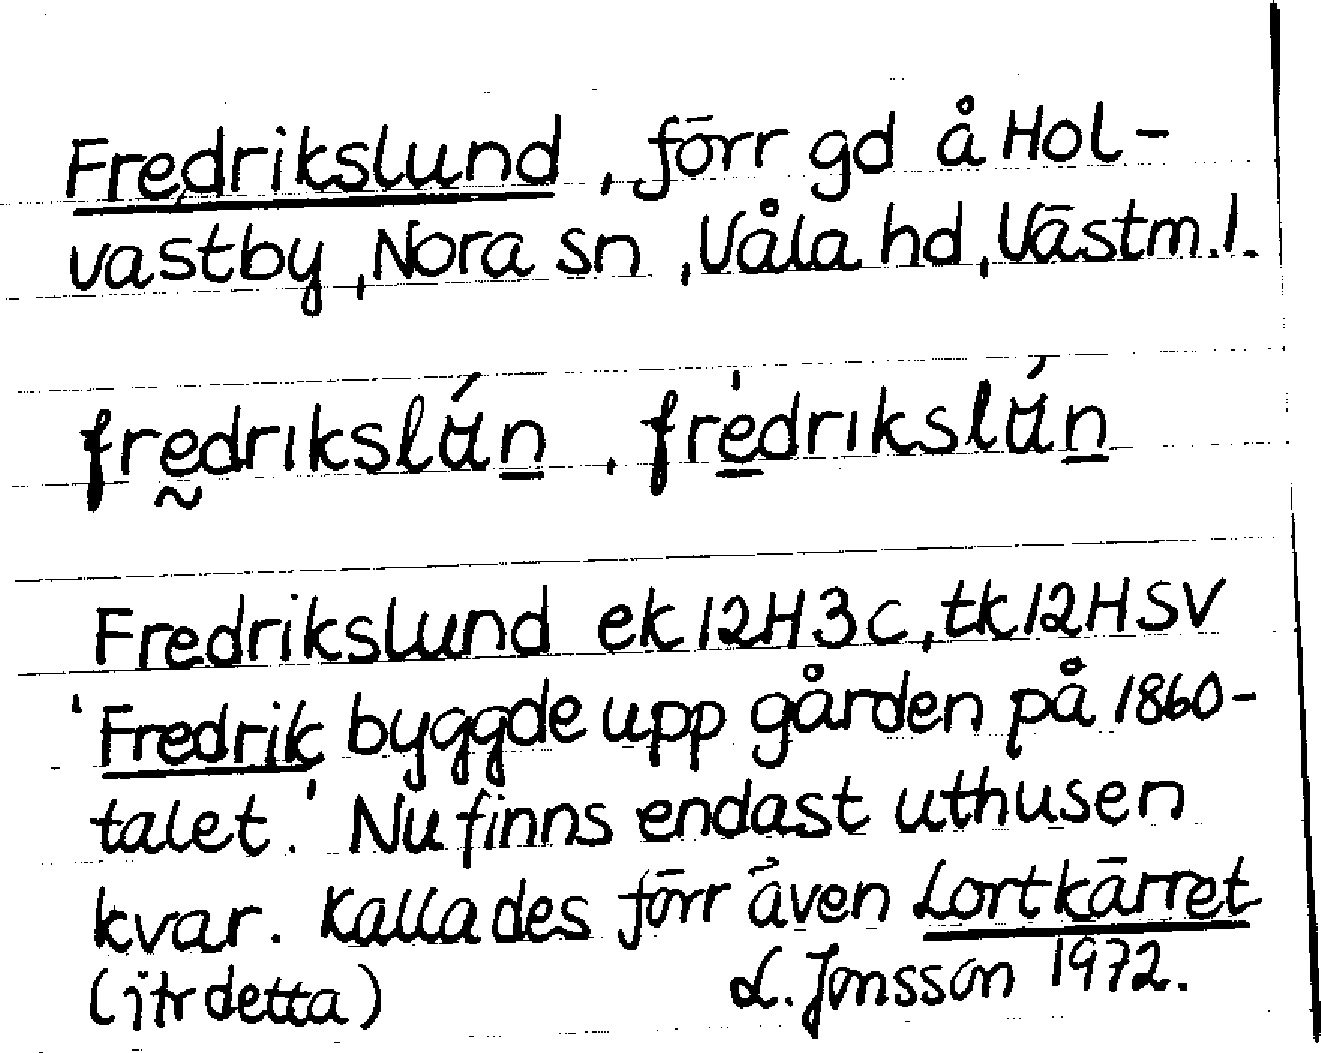 Fredrikslund, förr gd å Hol-
vastby, Nora sn, Våla hd, Västm.l.
fredrikslún, frédrikslún
Fredrikslund ek12H3c, tk12HSV
'Fredrik byggde upp gården på 1860-
talet.' Nu finns endast uthusen
kvar. Kallades förr även Lortkärret
(jfr detta) L. Jonsson 1972.